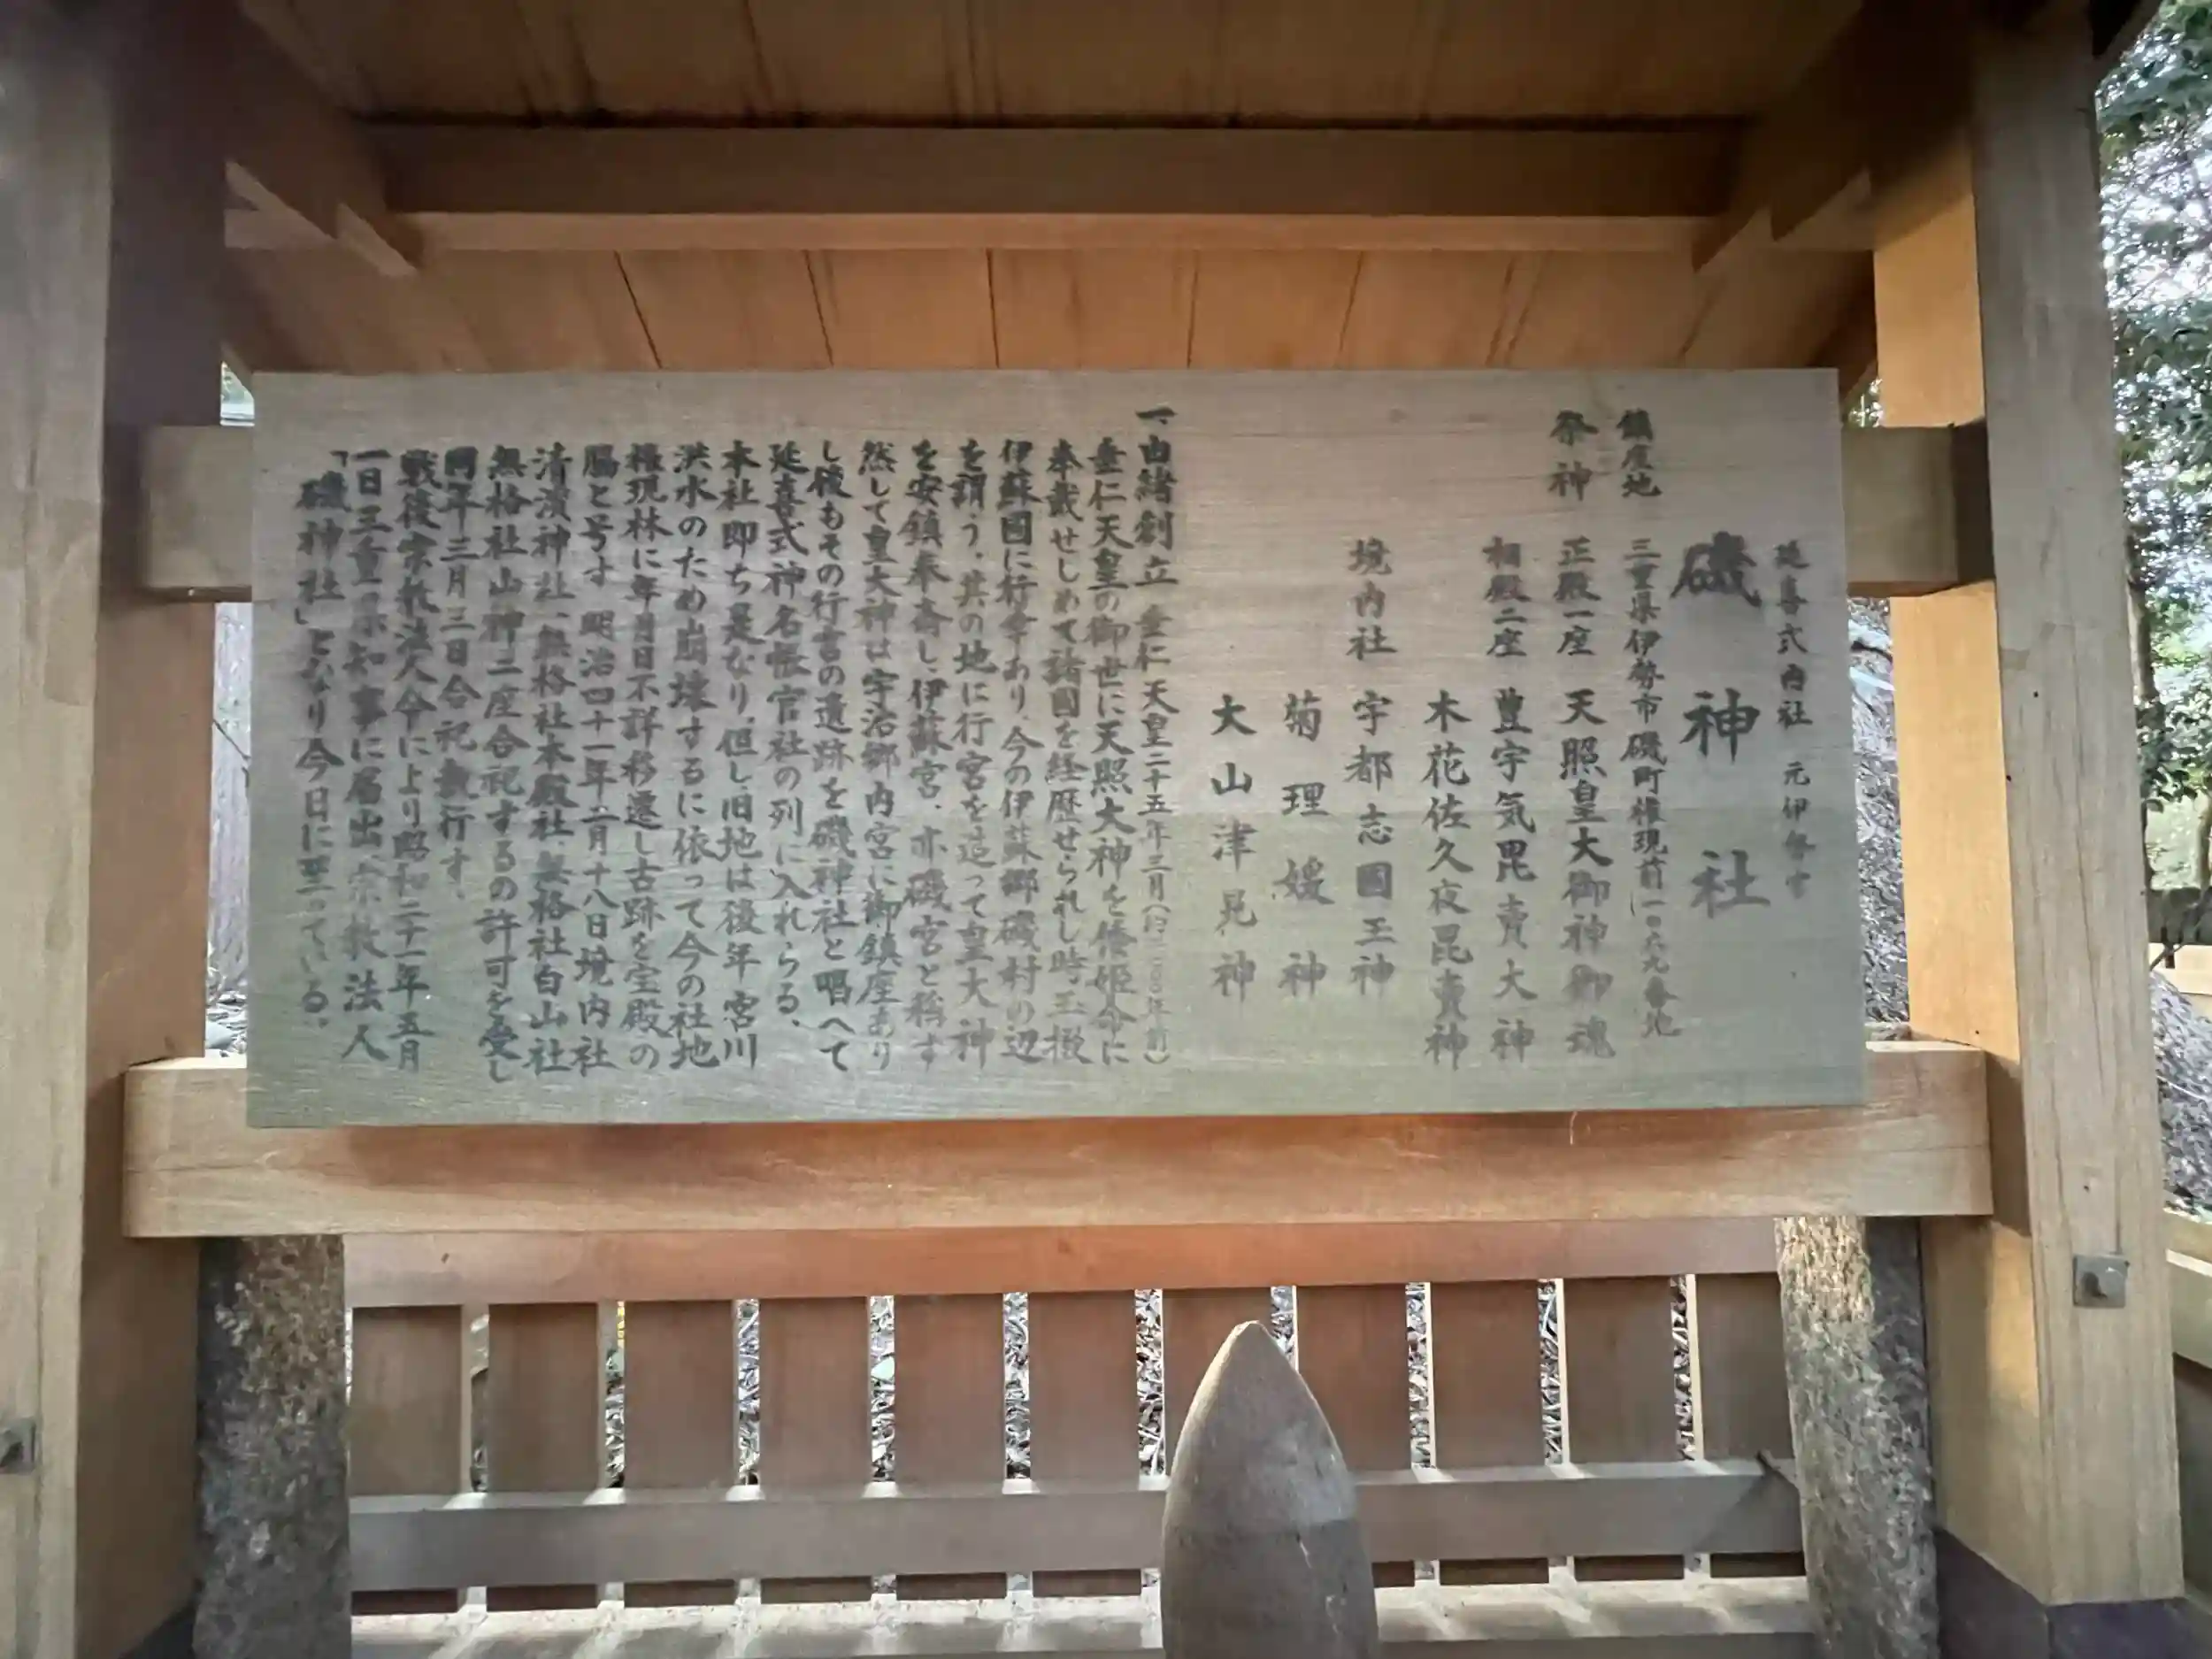 延喜式内社 元伊勢
磯神社
鎮座地 三重県伊勢市磯町権現前一〇六九番地
祭神 正殿一座 天照皇大御神御魂
相殿二座 豊宇気毘賣大神
木花佐久夜毘賣神
境内社 宇都志國玉神
菊理媛神
大山津見神
一、由緒創立 垂仁天皇二十五年三月
垂仁天皇の御世に天照大神を倭姫命に
奉戴せしめて諸國を経歴せられし時、玉掇
伊蘇國に行幸あり、今の伊蘇郷磯村の辺
を謂う、其の地に行宮を造って皇大神
を安鎮奉斎し、伊蘇宮、亦磯宮と称す
然して皇大神は宇治郷内宮に御鎮座あり
し後もその行宮の遺跡を磯神社と唱へて
延喜式神名帳官社の列に入れらる、
本社即ち是なり、但し旧地は後年宮川
洪水のため崩壊するに依って今の社地
権現林に年月日不詳移遷し古跡を宝殿の
腸と号す 明治四十一年二月十八日境内社
清濱神社、無格社本殿社、無格社白山社
無格社山神二座合祀するの許可を受し
同年三月三日合祀執行す、
戦後宗教法人令により昭和二十一年五月
一日三重県知事に届出、宗教法人
「磯神社」となり今日に至っている、